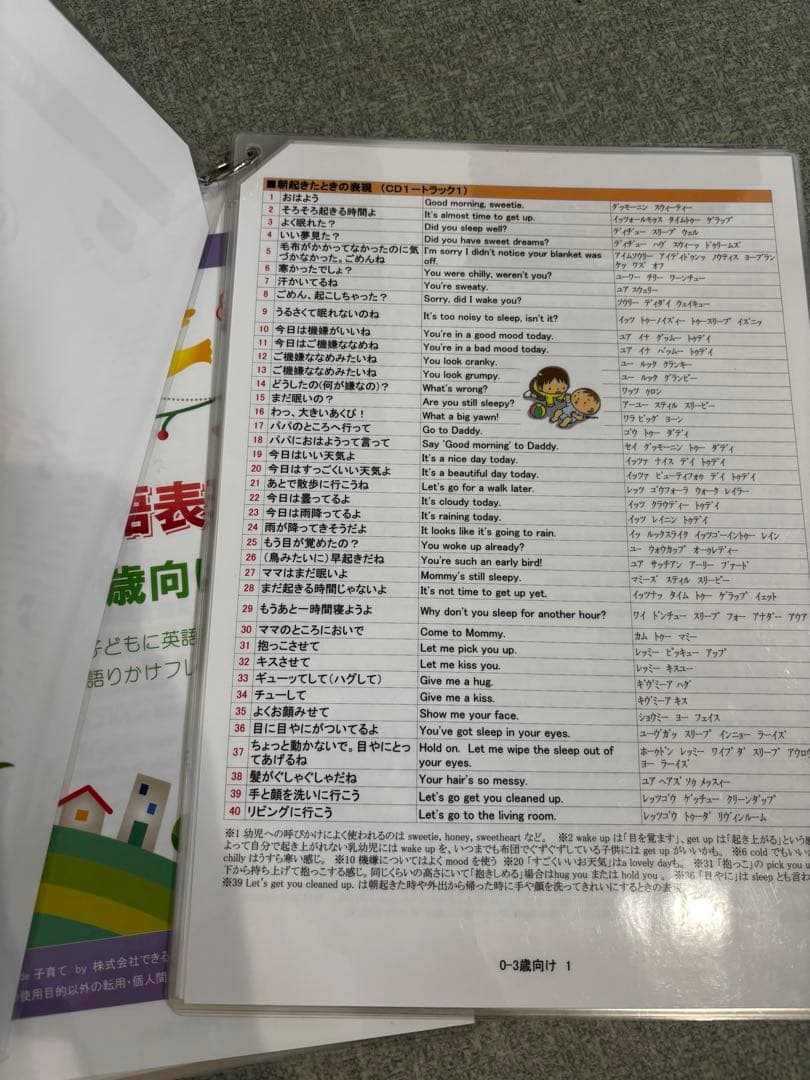 ■朝起きたときの表現 (CD1ートラック1)
1 おはよう Good morning, sweetie. グッモーニン スウィーティー
2 そろそろ起きる時間よ It's almost time to get up. イッツォールモゥス タイムトゥー ゲラップ
3 よく眠れた？ Did you sleep well? ディヂュー スリープ ウェル
4 いい夢見た？ Did you have sweet dreams? ディヂュー ハヴ スウィーッ ドゥリームズ
5 毛布がかかってなかったのに気づかなかった。ごめんね I'm sorry I didn't notice your blanket was off. アイムソウリー アイディドゥンッ ノウティス ヨーブランケッ ワズ オフ
6 寒かったでしょ？ You were chilly, weren't you? ユーワー チリー ワーンチュー
7 汗かいてるね You're sweaty. ユア スウェリー
8 ごめん、起こしちゃった？ Sorry, did I wake you? ソウリー ディダイ ウェイキュー
9 うるさくて眠れないのね It's too noisy to sleep, isn't it? イッツ トゥーノイズィー トゥースリープ イズニッ
10 今日は機嫌がいいね You're in a good mood today. ユア イナ グッムー トゥデイ
11 今日はご機嫌ななめね You're in a bad mood today. ユア イナ バッムー トゥデイ
12 ご機嫌ななめみたいね You look cranky. ユー ルック クランキー
13 ご機嫌ななめみたいね You look grumpy. ユー ルック グランピー
14 どうしたの(何が嫌なの)？ What's wrong? ワッツ ゥロン
15 まだ眠いの？ Are you still sleepy? アーユー スティル スリーピー
16 わっ、大きいあくび！ What a big yawn! ワラ ビッグ ヨーン
17 パパのところへ行って Go to Daddy. ゴウ トゥー ダディ
18 パパにおはようって言って Say 'Good morning' to Daddy. セイ グッモーニン トゥー ダディ
19 今日はいい天気よ It's a nice day today. イッツァ ナイス デイ トゥデイ
20 今日はすっごくいい天気よ It's a beautiful day today. イッツァ ビューティフォゥ デイ トゥデイ
21 あとで散歩に行こうね Let's go for a walk later. レッツ ゴウフォーラ ウォーク レイラー
22 今日は曇ってるよ It's cloudy today. イッツ クラウディー トゥデイ
23 今日は雨降ってるよ It's raining today. イッツ レイニン トゥデイ
24 雨が降ってきそうだよ It looks like it's going to rain. イッ ルックスライク イッツゴーイントゥー レイン
25 もう目が覚めたの？ You woke up already? ユー ウォウカップ オーゥレディー
26 (鳥みたいに)早起きだね You're such an early bird! ユア サッチアン アーリー ブァード
27 ママはまだ眠いよ Mommy's still sleepy. マミーズ スティル スリーピー
28 まだ起きる時間じゃないよ It's not time to get up yet. イッツナッ タイム トゥー ゲラップ イェット
29 もうあと一時間寝ようよ Why don't you sleep for another hour? ワイ ドンチュー スリープ フォー アナダー アウア
30 ママのところにおいで Come to Mommy. カム トゥー マミー
31 抱っこさせて Let me pick you up. レッミー ピッキュー アップ
32 キスさせて Let me kiss you. レッミー キスユー
33 ギューッてして(ハグして) Give me a hug. ギヴミーア ハグ
34 チューして Give me a kiss. ギヴミーア キス
35 よくお顔みせて Show me your face. ショウミー ヨー フェイス
36 目に目やにがついてるよ You've got sleep in your eyes. ユーヴガッ スリープ インニョー ラーイズ
37 ちょっと動かないで。目やにとってあげるね Hold on. Let me wipe the sleep out of your eyes. ホーゥドン レッミー ワイプ ダ スリープ アウロヴ ヨー ラーイズ
38 髪がぐしゃぐしゃだね Your hair's so messy. ユア ヘアズ ソゥ メッスィー
39 手と顔を洗いに行こう Let's go get you cleaned up. レッツゴウ ゲッチュー クリーンダップ
40 リビングに行こう Let's go to the living room. レッツゴウ トゥーダ リヴィンルーム
※1 幼児への呼びかけによく使われるのは sweetie, honey, sweetheart など。 ※2 wake up は「目を覚ます」、get up は「起き上がる」という
よって自分で起き上がれない乳幼児には wake up を、いつまでも布団でぐずぐずしている子供には get up がいいかも。 ※6 cold でもいい
chilly はうすら寒い感じ。 ※10 機嫌についてはよく mood を使う ※20 「すごくいいお天気」はa lovely dayも。 ※31 「抱っこ」の pick you u
下から持ち上げて抱っこする感じ。同じくらいの高さにいて「抱きしめる」場合はhug you または hold you 。 ※36 「目やに」は sleep とも言
※39 Let's get you cleaned up. は朝起きた時や外出から帰った時に手や顔を洗ってきれいにするときの表
0-3歳向け 1
語表
歳向け
子どもに英語
語りかけフレ
de 子育て by 株式会社できる
使用目的以外の転用・個人間